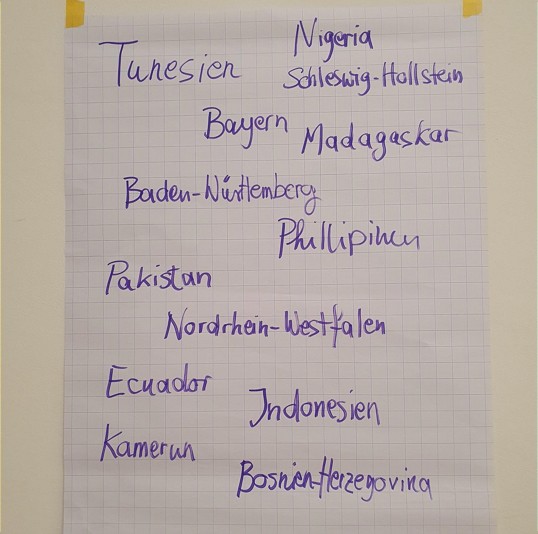 Nigeria
Tunesien
Schleswig-Hollstein
Bayern
Madagaskar
Baden-Würtlemberg
Phillipinen
Pakistan
Nordrhein-Westfalen
Ecuador
Indonesien
Kamerun
Bosnien-Herzegovina